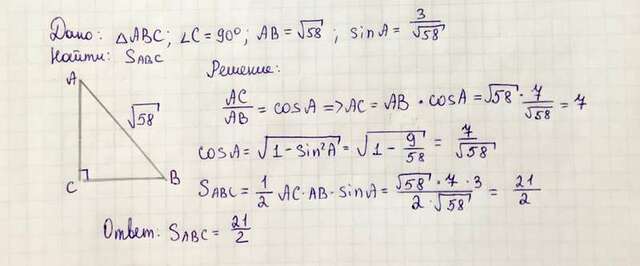 Дано: △ABC; ∠C = 90°; AB = √58; sinA = 3/√58
Найти: SABC
Решение:
A
√58
C
B
AC/AB = cosA => AC = AB · cosA = √58 · 7/√58 = 7
cosA = √1-sin²A = √1 - 9/58 = 7/√58
SABC = 1/2 AC · AB · sinA = √58 · 7 · 3/2 · √58 = 21/2
Ответ: SABC = 21/2